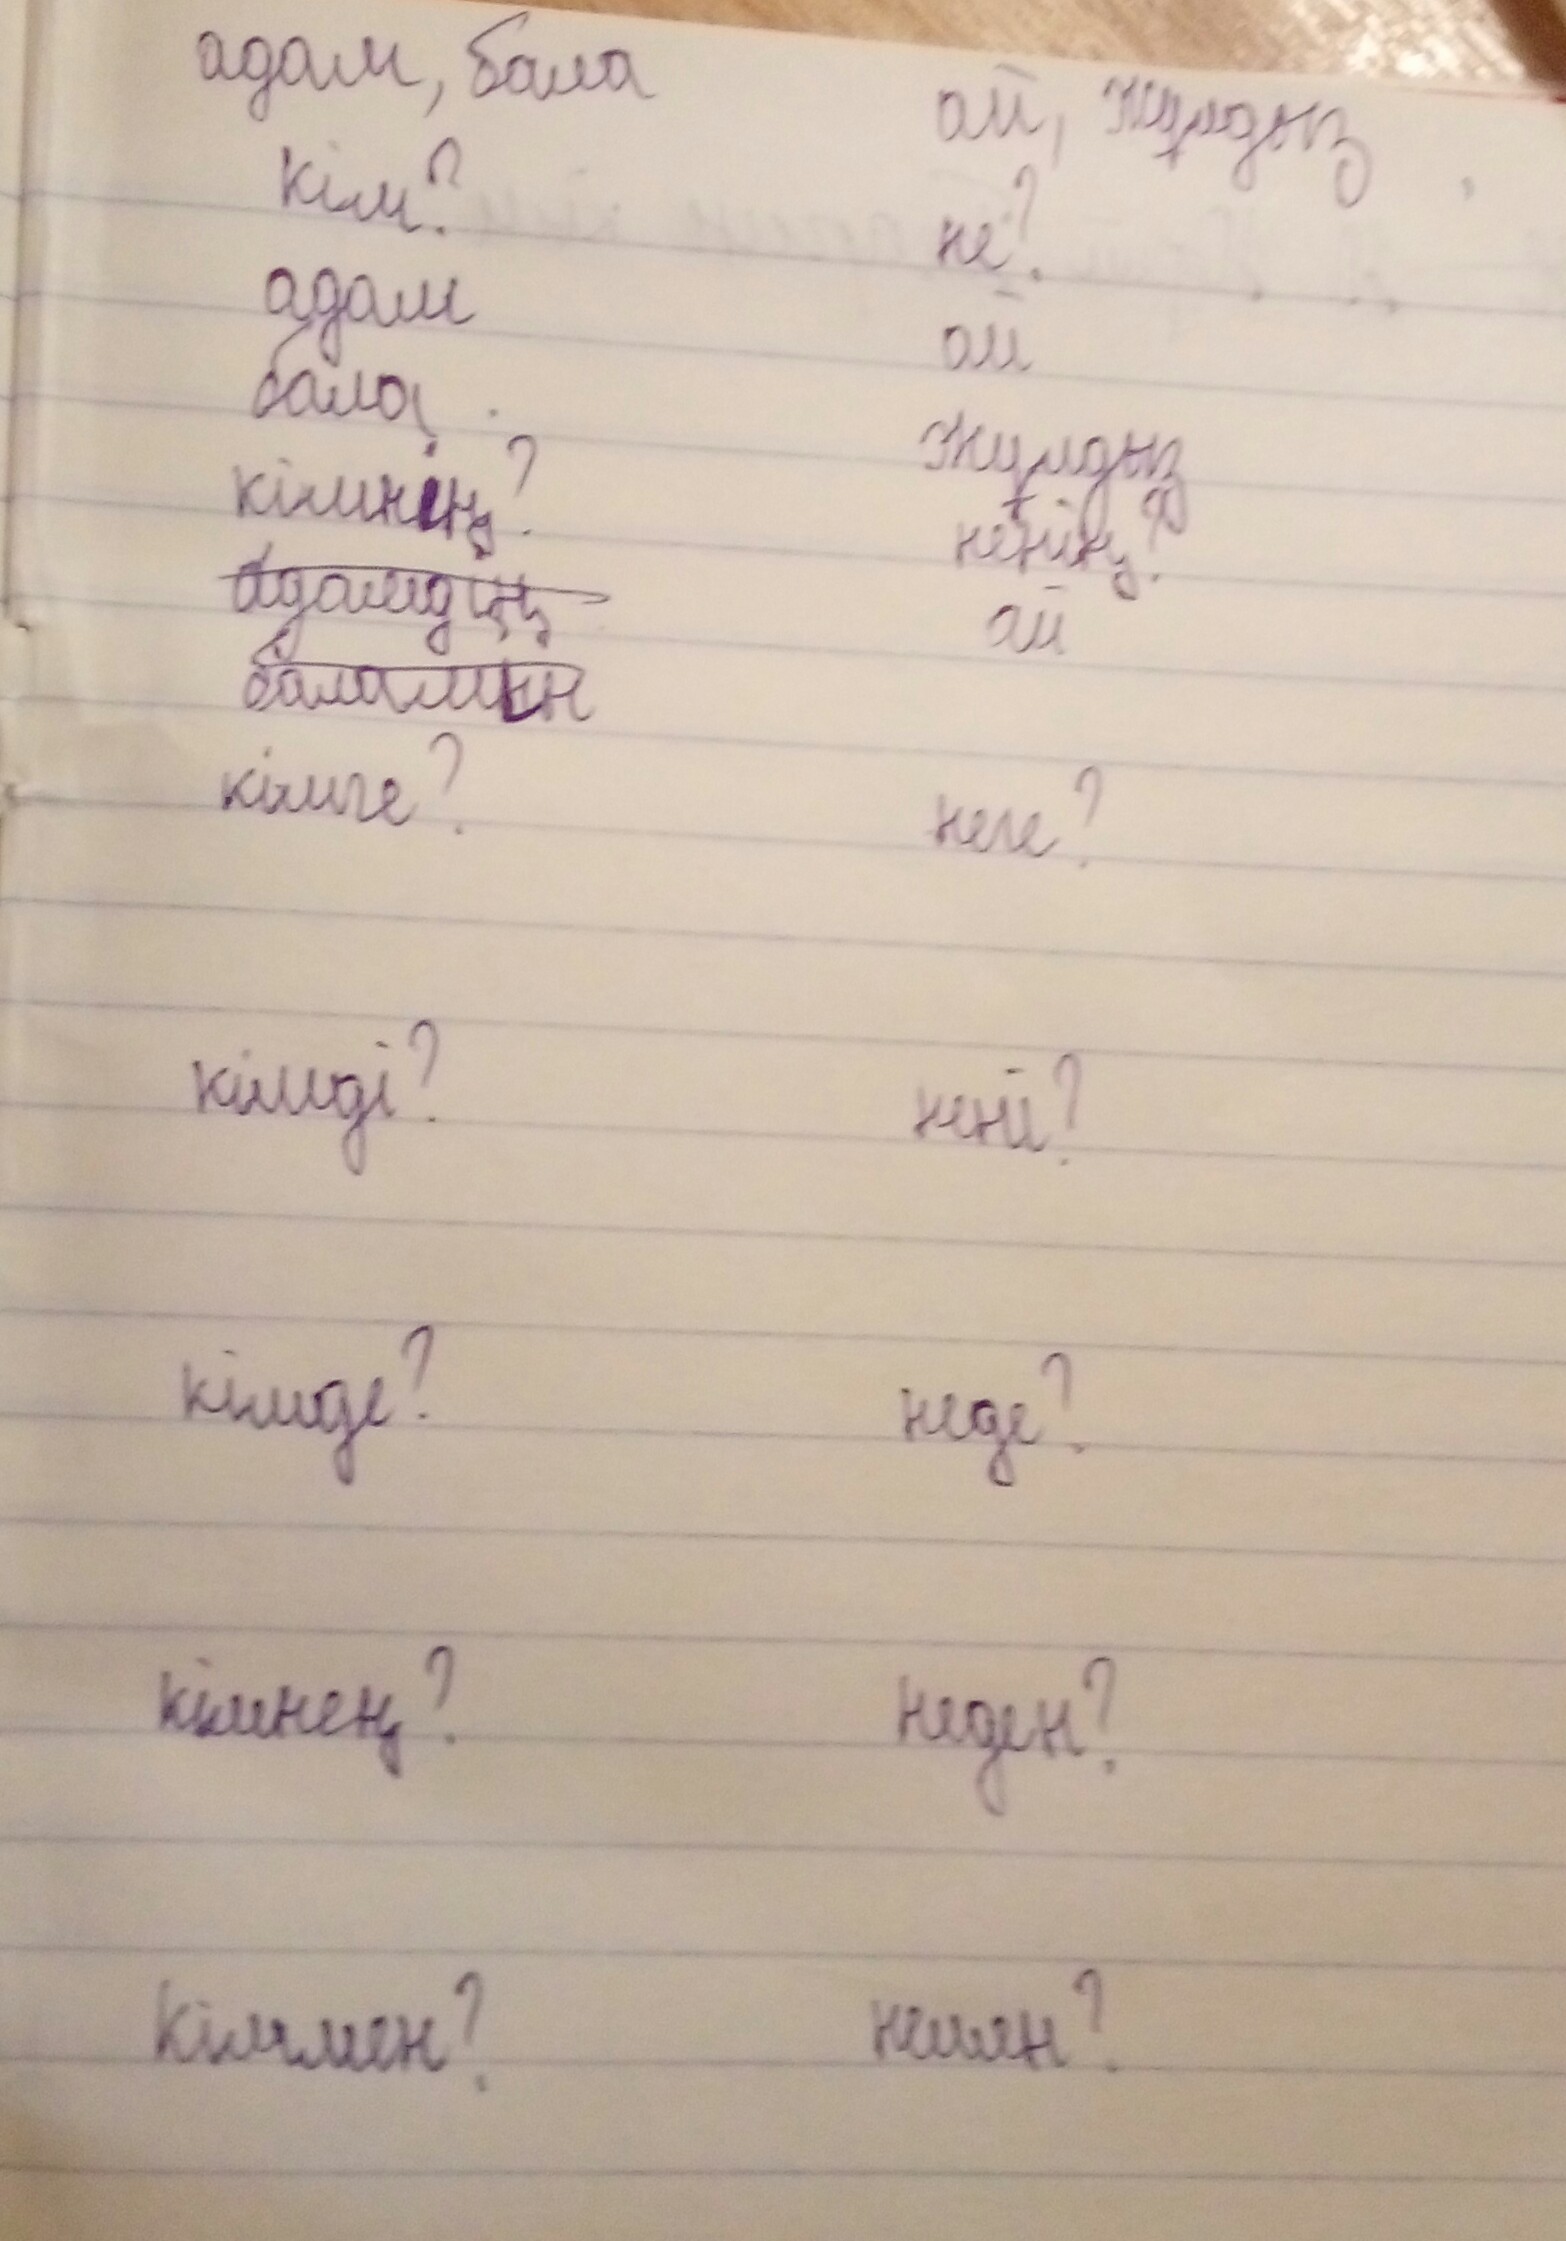 адам, бала
ай, жұлдыз
кім?
не?
адам
ай
бала
жұлдыз
кімнің?
ненің?
ай
кімге?
неге?
кімді?
нені?
кімде?
неде?
кімнең?
неден?
кіммен?
немен?